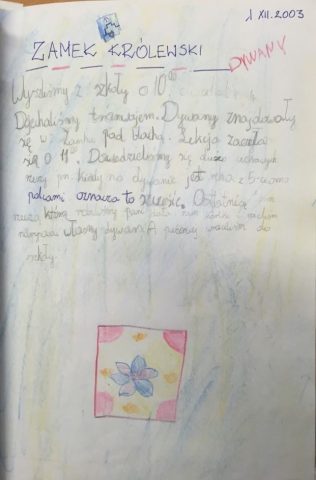 1 XII.2003
ZAMEK KRÓLEWSKI
DYWANY
Wyszliśmy z szkoły o 10⁰⁰
Dojechaliśmy tramwajem. Dywany znajdowały
się w Zamku pod blachą. Lekcja zaczeła
się o 11. Dowiedzieliśmy się dużo ciekawych
rzeczy np. kiedy na dywanie jest róża z 5-cioma
płatkami oznacza to szczęście. Ostatnią
rzeczą którą robiliśmy pani dała nam kartki i
własny dywan. A puźniej wróciliśmy do
szkoły.